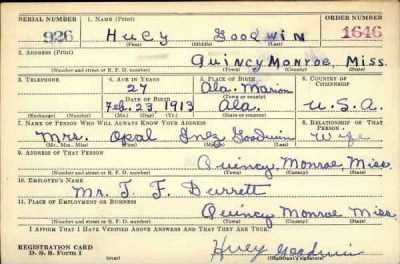 SERIAL NUMBER 1. NAME (Print) ORDER NUMBER
926 Huey Goodwin 1646
(First) (Middle) (Last)
2. ADDRESS (Print)
Quincy Monroe, Miss.
(Number and street or R. F. D. number) (Town) (County) (State)
3. TELEPHONE 4. AGE IN YEARS 5. PLACE OF BIRTH 6. COUNTRY OF CITIZENSHIP
27 Ala. Marion
DATE OF BIRTH (Town or county)
Feb. 23 1913 Ala. U.S.A.
(Exchange) (No.) (Mo.) (Day) (Yr.) (State or country)
7. NAME OF PERSON WHO WILL ALWAYS KNOW YOUR ADDRESS 8. RELATIONSHIP OF THAT PERSON
Mrs. Opal Inez Goodwin Wife
(Mr., Mrs., Miss) (First) (Middle) (Last)
9. ADDRESS OF THAT PERSON
Quincy, Monroe, Miss.
(Number and street or R. F. D. number) (Town) (County) (State)
10. EMPLOYER'S NAME
Mr. T. F. Durrett
11. PLACE OF EMPLOYMENT OR BUSINESS
Quincy Monroe Miss.
(Number and street or R. F. D. number) (Town) (County) (State)
I AFFIRM THAT I HAVE VERIFIED ABOVE ANSWERS AND THAT THEY ARE TRUE.
REGISTRATION CARD
D. S. S. Form 1 (over) Huey Goodwin
(Registrant's signature)